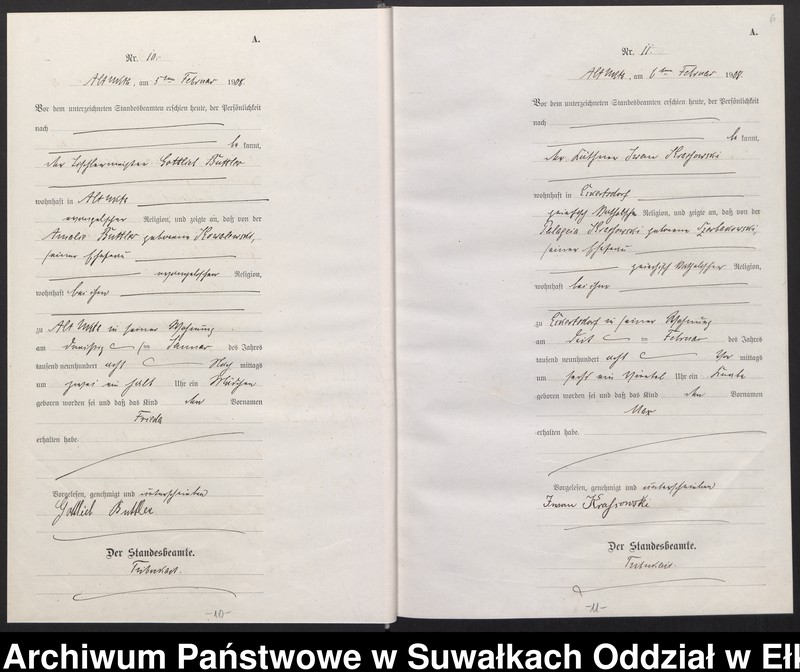 A.
Nr. 10.
Alt Ukta, am 5ten Februar 1908.
Vor dem unterzeichneten Standesbeamten erschien heute, der Persönlichkeit
nach
be kannt,
der Tischlermeister Gottlieb Buttler
wohnhaft in Alt Ukta
evangelischer Religion, und zeigte an, daß von der
Amalie Buttler geborene Kowalewski,
seiner Ehefrau
evangelischen Religion,
wohnhaft bei ihm
zu Alt Ukta in seiner Wohnung
am Januar des Jahres
tausend neunhundert acht Nach mittags
um zwei ein halb Uhr ein Mädchen
geboren worden sei und daß das Kind den Vornamen
Frieda
erhalten habe.
Vorgelesen, genehmigt und unterschrieben
Gottlieb Buttler
Der Standesbeamte.
-10-
6
A.
Nr. 11.
Alt Ukta, am 6ten Februar 1908.
Vor dem unterzeichneten Standesbeamten erschien heute, der Persönlichkeit
nach
be kannt,
der Käthner Iwan Krassowski
wohnhaft in Eckertsdorf
Religion, und zeigte an, daß von der
Pelageia Krassowski geborene
seiner Ehefrau
Religion,
wohnhaft bei ihm
zu Eckertsdorf in seiner Wohnung
am Februar des Jahres
tausend neunhundert acht Vor mittags
um sechs ein Viertel Uhr ein Knabe
geboren worden sei und daß das Kind den Vornamen
Max
erhalten habe.
Vorgelesen, genehmigt und unterschrieben
Iwan Krassowski
Der Standesbeamte.
-11-
Archiwum Państwowe w Suwałkach Oddział w Eł